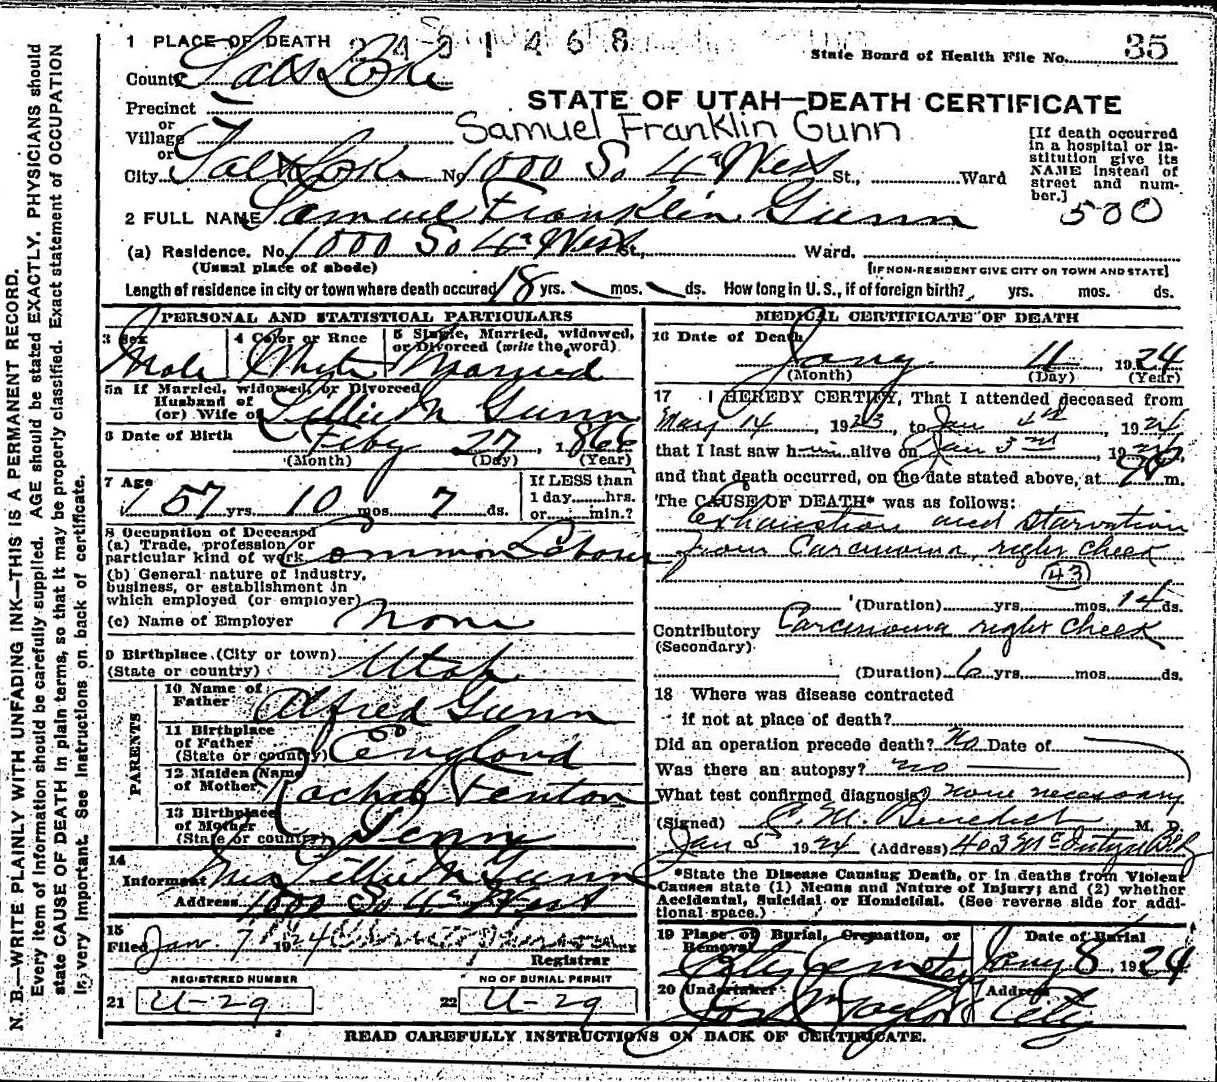 1 PLACE OF DEATH 2421468
State Board of Health File No. 35
County Salt Lake
STATE OF UTAH—DEATH CERTIFICATE
Precinct
or
Village Samuel Franklin Gunn
or
City Salt Lake No. 1000 So 4th West St., Ward
[If death occurred
in a hospital or in-
stitution give its
NAME instead of
street and num-
ber.]
500
2 FULL NAME Samuel Franklin Gunn
(a) Residence. No. 1000 So 4th West St., Ward.
(Usual place of abode) [IF NON-RESIDENT GIVE CITY OR TOWN AND STATE]
Length of residence in city or town where death occured 18 yrs. mos. ds. How long in U. S., if of foreign birth? yrs. mos. ds.
PERSONAL AND STATISTICAL PARTICULARS
3 Sex 4 Color or Race 5 Single, Married, widowed,
or Divorced (write the word)
Male White Married
5a If Married, widowed, or Divorced
Husband of
(or) Wife of Lillie M Gunn
6 Date of Birth Feby 27, 1866
(Month) (Day) (Year)
7 Age If LESS than
57 yrs. 10 mos. 7 ds. 1 day hrs.
or min.?
8 Occupation of Deceased
(a) Trade, profession or
particular kind of work Common Laborer
(b) General nature of industry,
business, or establishment in
which employed (or employer)
(c) Name of Employer none
9 Birthplace (City or town)
(State or country) Utah
PARENTS
10 Name of
Father Alfred Gunn
11 Birthplace
of Father
(State or country) England
12 Maiden Name
of Mother Rachel Fenton
13 Birthplace
of Mother
(State or country) Penn
14
Informant Mrs Lillie M Gunn
Address 1000 So 4th West
15
Filed Jan 7 1924
Registrar
REGISTERED NUMBER NO OF BURIAL PERMIT
21 U-29 22 U-29
MEDICAL CERTIFICATE OF DEATH
16 Date of Death
Jany. 4 1924
(Month) (Day) (Year)
17 I HEREBY CERTIFY, That I attended deceased from
May 14, 1923, to Jan 4th, 1924
that I last saw him alive on Jan 3rd, 1924,
and that death occurred, on the date stated above, at m.
The CAUSE OF DEATH* was as follows:
Exhaustion and Starvation
from Carcinoma right cheek
43
(Duration) yrs. mos. 14 ds.
Contributory Carcinoma right cheek
(Secondary)
(Duration) 6 yrs. mos. ds.
18 Where was disease contracted
if not at place of death?
Did an operation precede death? No Date of
Was there an autopsy? no
What test confirmed diagnosis? none necessary
(Signed) C. M. Benedict M. D.
Jan 5 1924 (Address) 403 McIntyre Bld
*State the Disease Causing Death, or in deaths from Violent
Causes state (1) Means and Nature of Injury; and (2) whether
Accidental, Suicidal or Homicidal. (See reverse side for addi-
tional space.)
19 Place of Burial, Cremation, or Date of Burial
Removal
City Cemetery Jany 8, 1924
20 Undertaker Address
Jos Taylor City
READ CAREFULLY INSTRUCTIONS ON BACK OF CERTIFICATE.
N. B.—WRITE PLAINLY WITH UNFADING INK—THIS IS A PERMANENT RECORD.
Every item of information should be carefully supplied. AGE should be stated EXACTLY. PHYSICIANS should
state CAUSE OF DEATH in plain terms, so that it may be properly classified. Exact statement of OCCUPATION
is very important. See instructions on back of certificate.